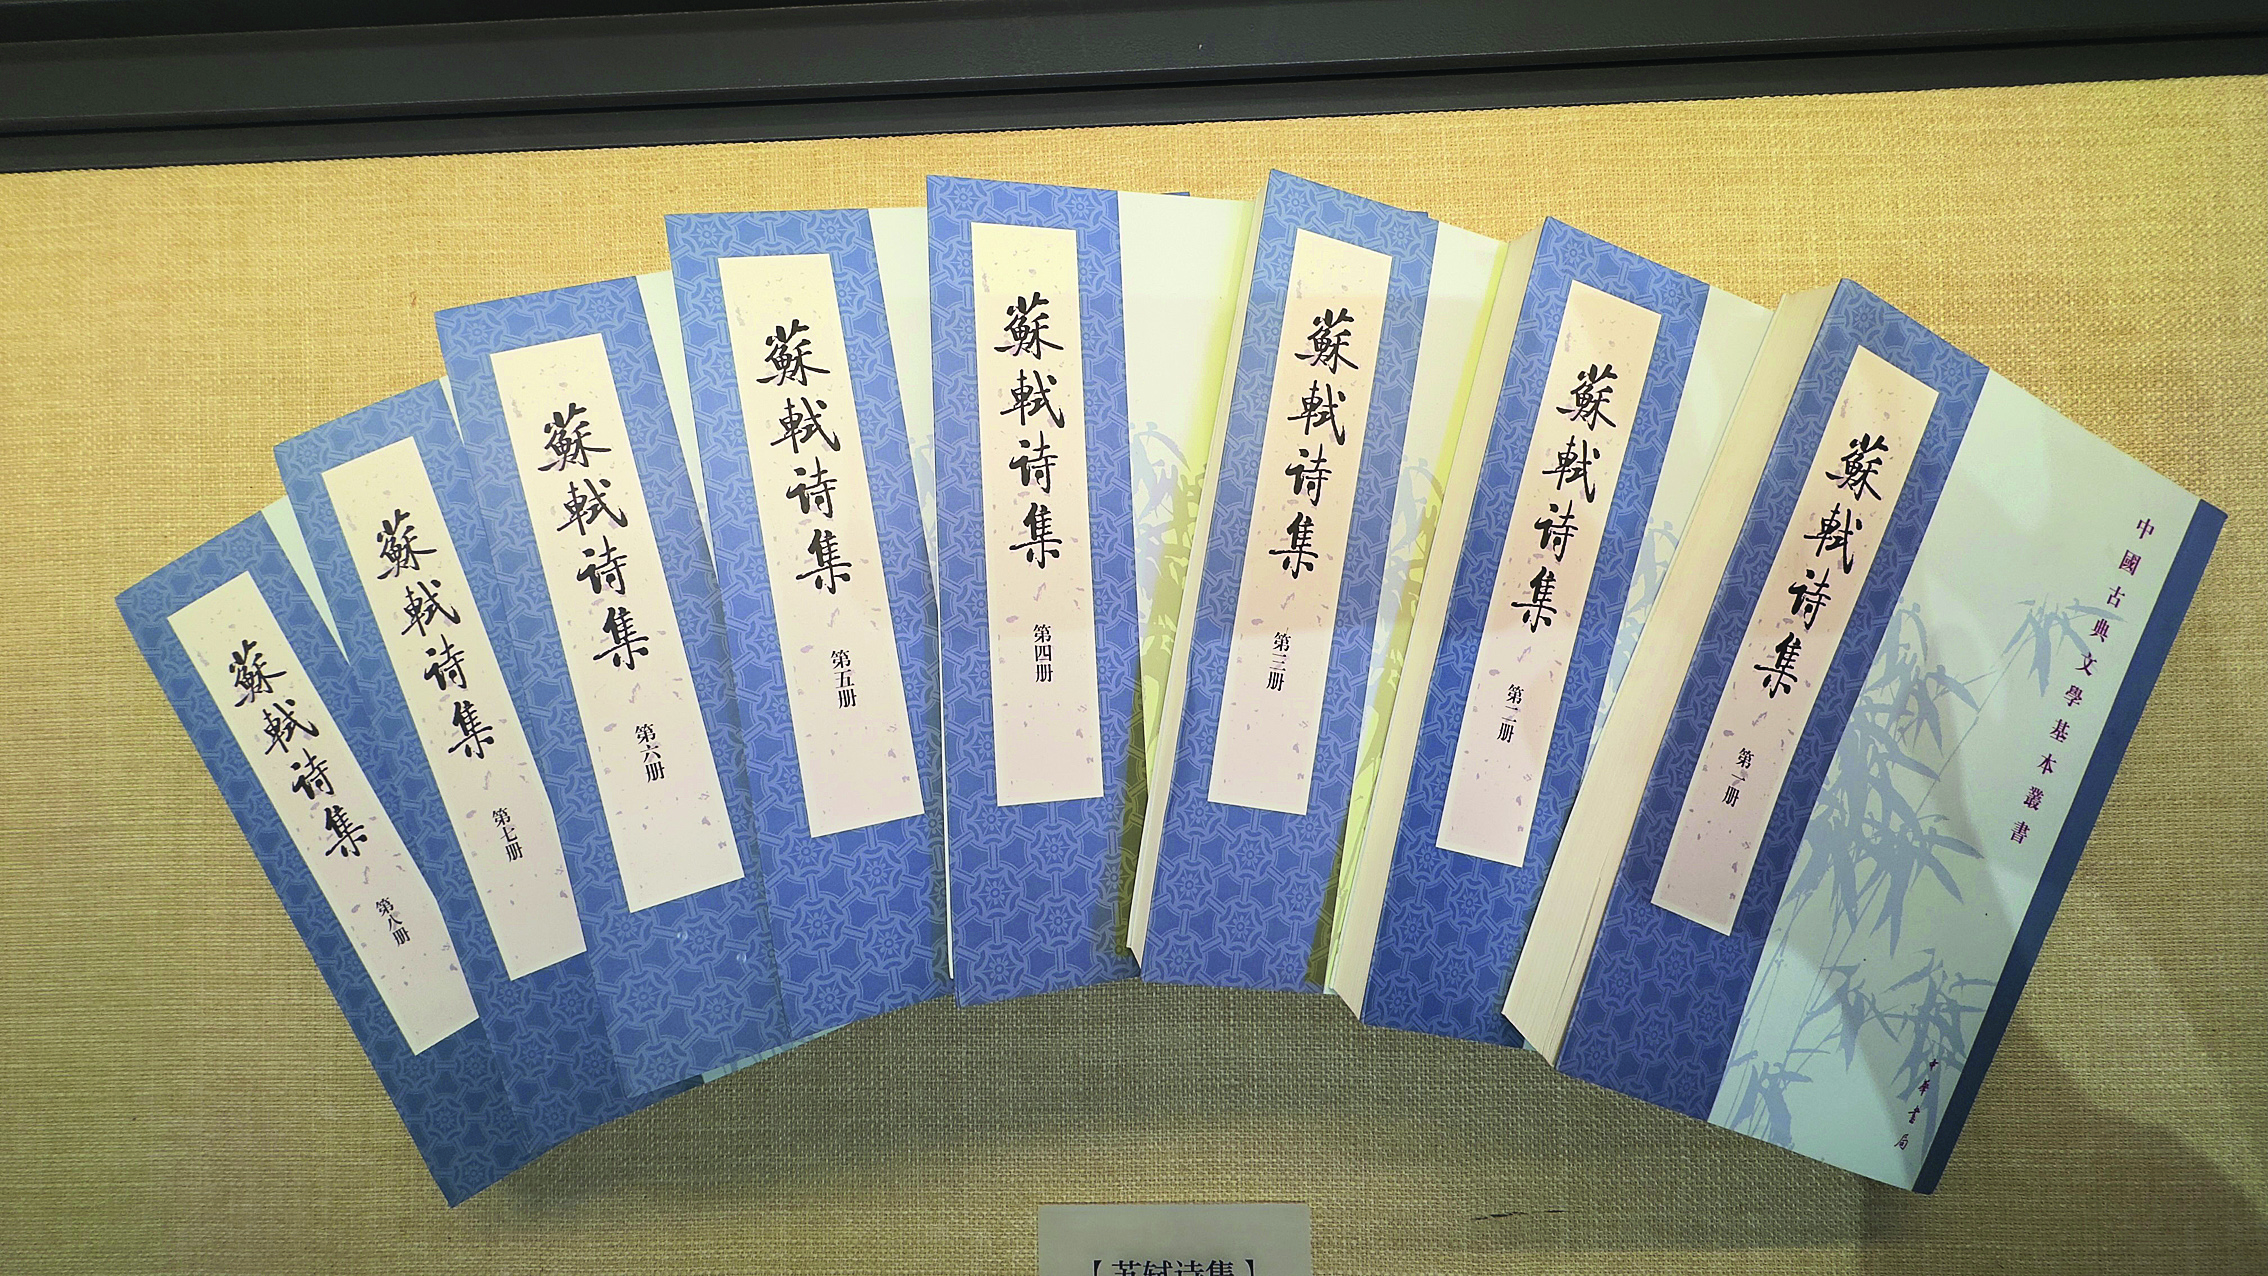 中國古典文學基本叢書
蘇軾诗集
第一册
中華書局
蘇軾诗集
第二册
蘇軾诗集
第三册
蘇軾诗集
第四册
蘇軾诗集
第五册
蘇軾诗集
第六册
蘇軾诗集
第七册
蘇軾诗集
第八册
【苏轼诗集】